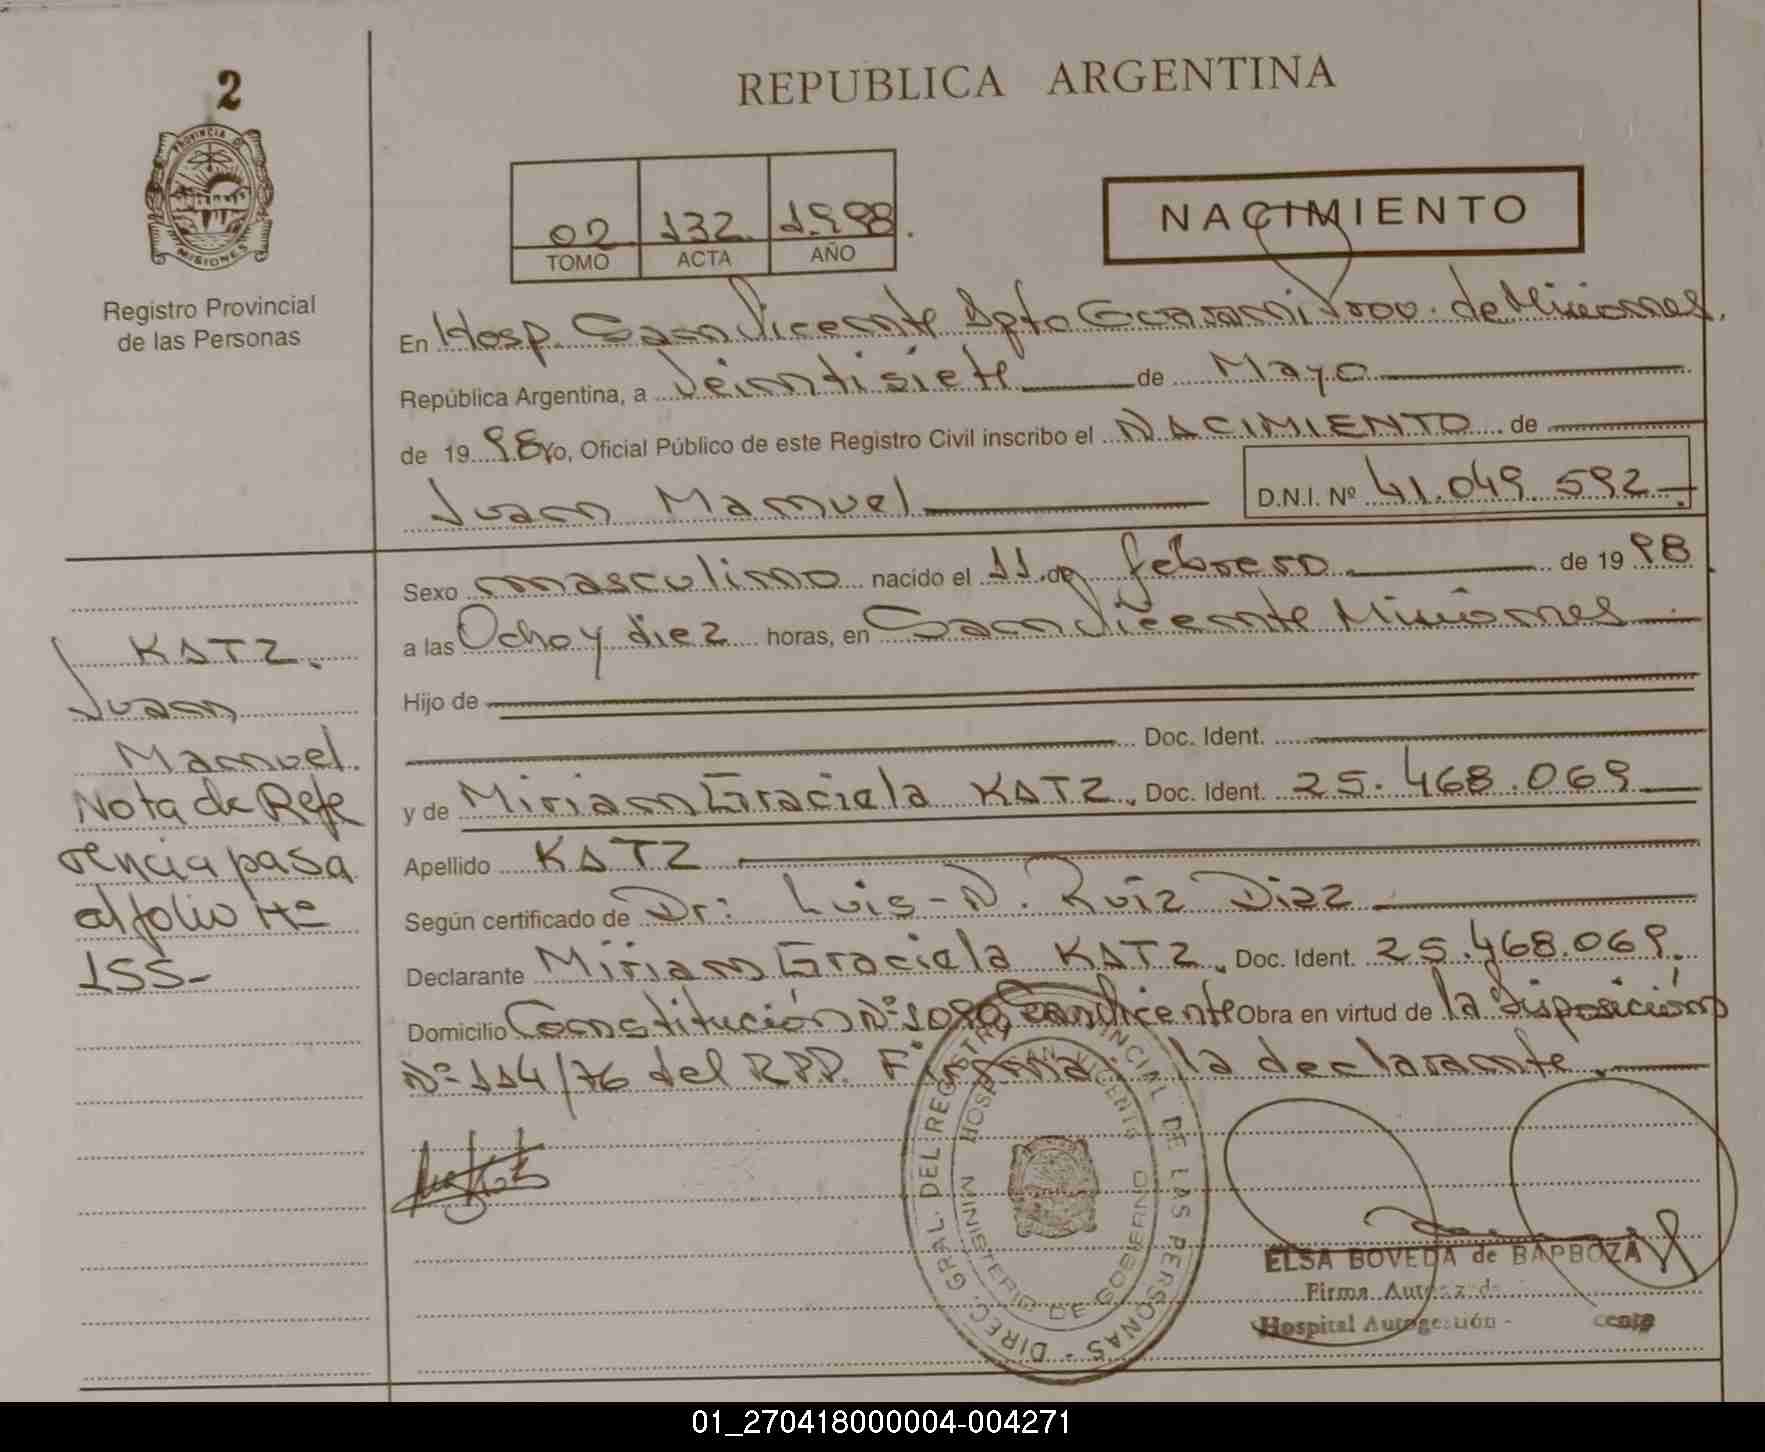 2
PROVINCIA DE
MISIONES
Registro Provincial
de las Personas
REPUBLICA ARGENTINA
02 132 1.998.
TOMO ACTA AÑO
NACIMIENTO
En Hosp. San Vicente Dpto Guarani Prov. de Misiones.
República Argentina, a Veintisiete de Mayo
de 19 98 Yo, Oficial Público de este Registro Civil inscribo el NACIMIENTO de
Juan Manuel D.N.I. Nº 41.049.592
Sexo masculino nacido el 11 de febrero de 19 98
a las Ocho y diez horas, en San Vicente Misiones
Hijo de
Doc. Ident.
y de Miriam Graciela KATZ. Doc. Ident. 25.468.069
Apellido KATZ
Según certificado de Dr: Luis-N. Ruiz Diaz
Declarante Miriam Graciela KATZ. Doc. Ident. 25.468.069.
Domicilio Constitución Nº 1080, San Vicente Obra en virtud de la disposición
Nº 114/76 del RPP. Firma: la declarante.
KATZ.
Juan
Manuel.
Nota de Refe
rencia pasa
al folio Nº
155-
DIREC. GRAL. DEL REGISTRO PROVINCIAL DE LAS PERSONAS -
HOSP. SAN VICENTE
MINISTERIO DE GOBIERNO
ELSA BOVEDA de BARBOZA
Firma Autorizada
Hospital Autogestión -
01_270418000004-004271